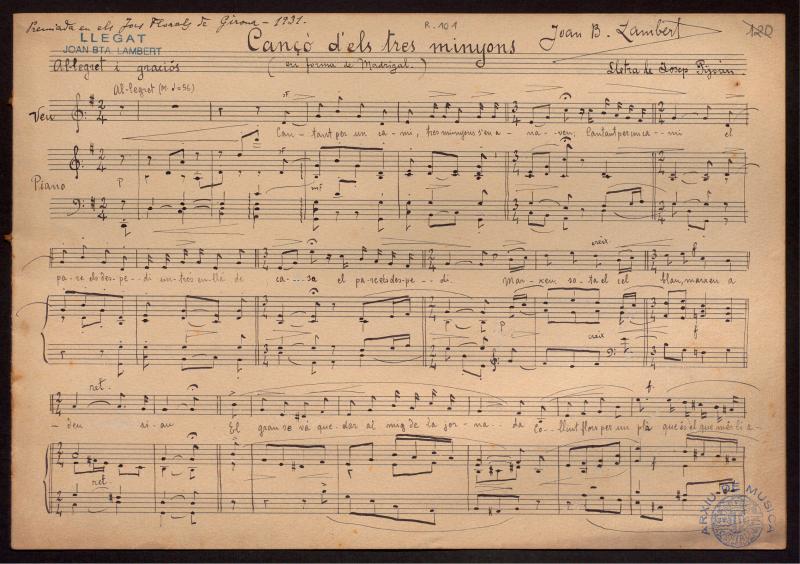 Premiada en els Jocs Florals de Girona - 1931.
R. 101
120
LLEGAT
JOAN BTA. LAMBERT
Cançó d'els tres minyons
Joan B. Lambert
Al·legret i graciós
(en forma de Madrigal.)
Lletra de Josep Pijoán
Al·legret (M. =56)
Veu
Can-tant per un ca-mi, tres minyons s'en a-na-ven; Cantant per un ca-mi el
Piano
p mf
pa-re els des-pe-di un-tros en-llà de ca-sa el pa-re els des-pe-di. Mar-xeu so-ta el cel blau, marxeu a
creix f
p p creix f
ret. f.
-deu si-au El gran se va que-dar al mig de la jor-na-da Co-llint flors per un pla que és el que més li a-
ret
ARXIU DE MUSICA